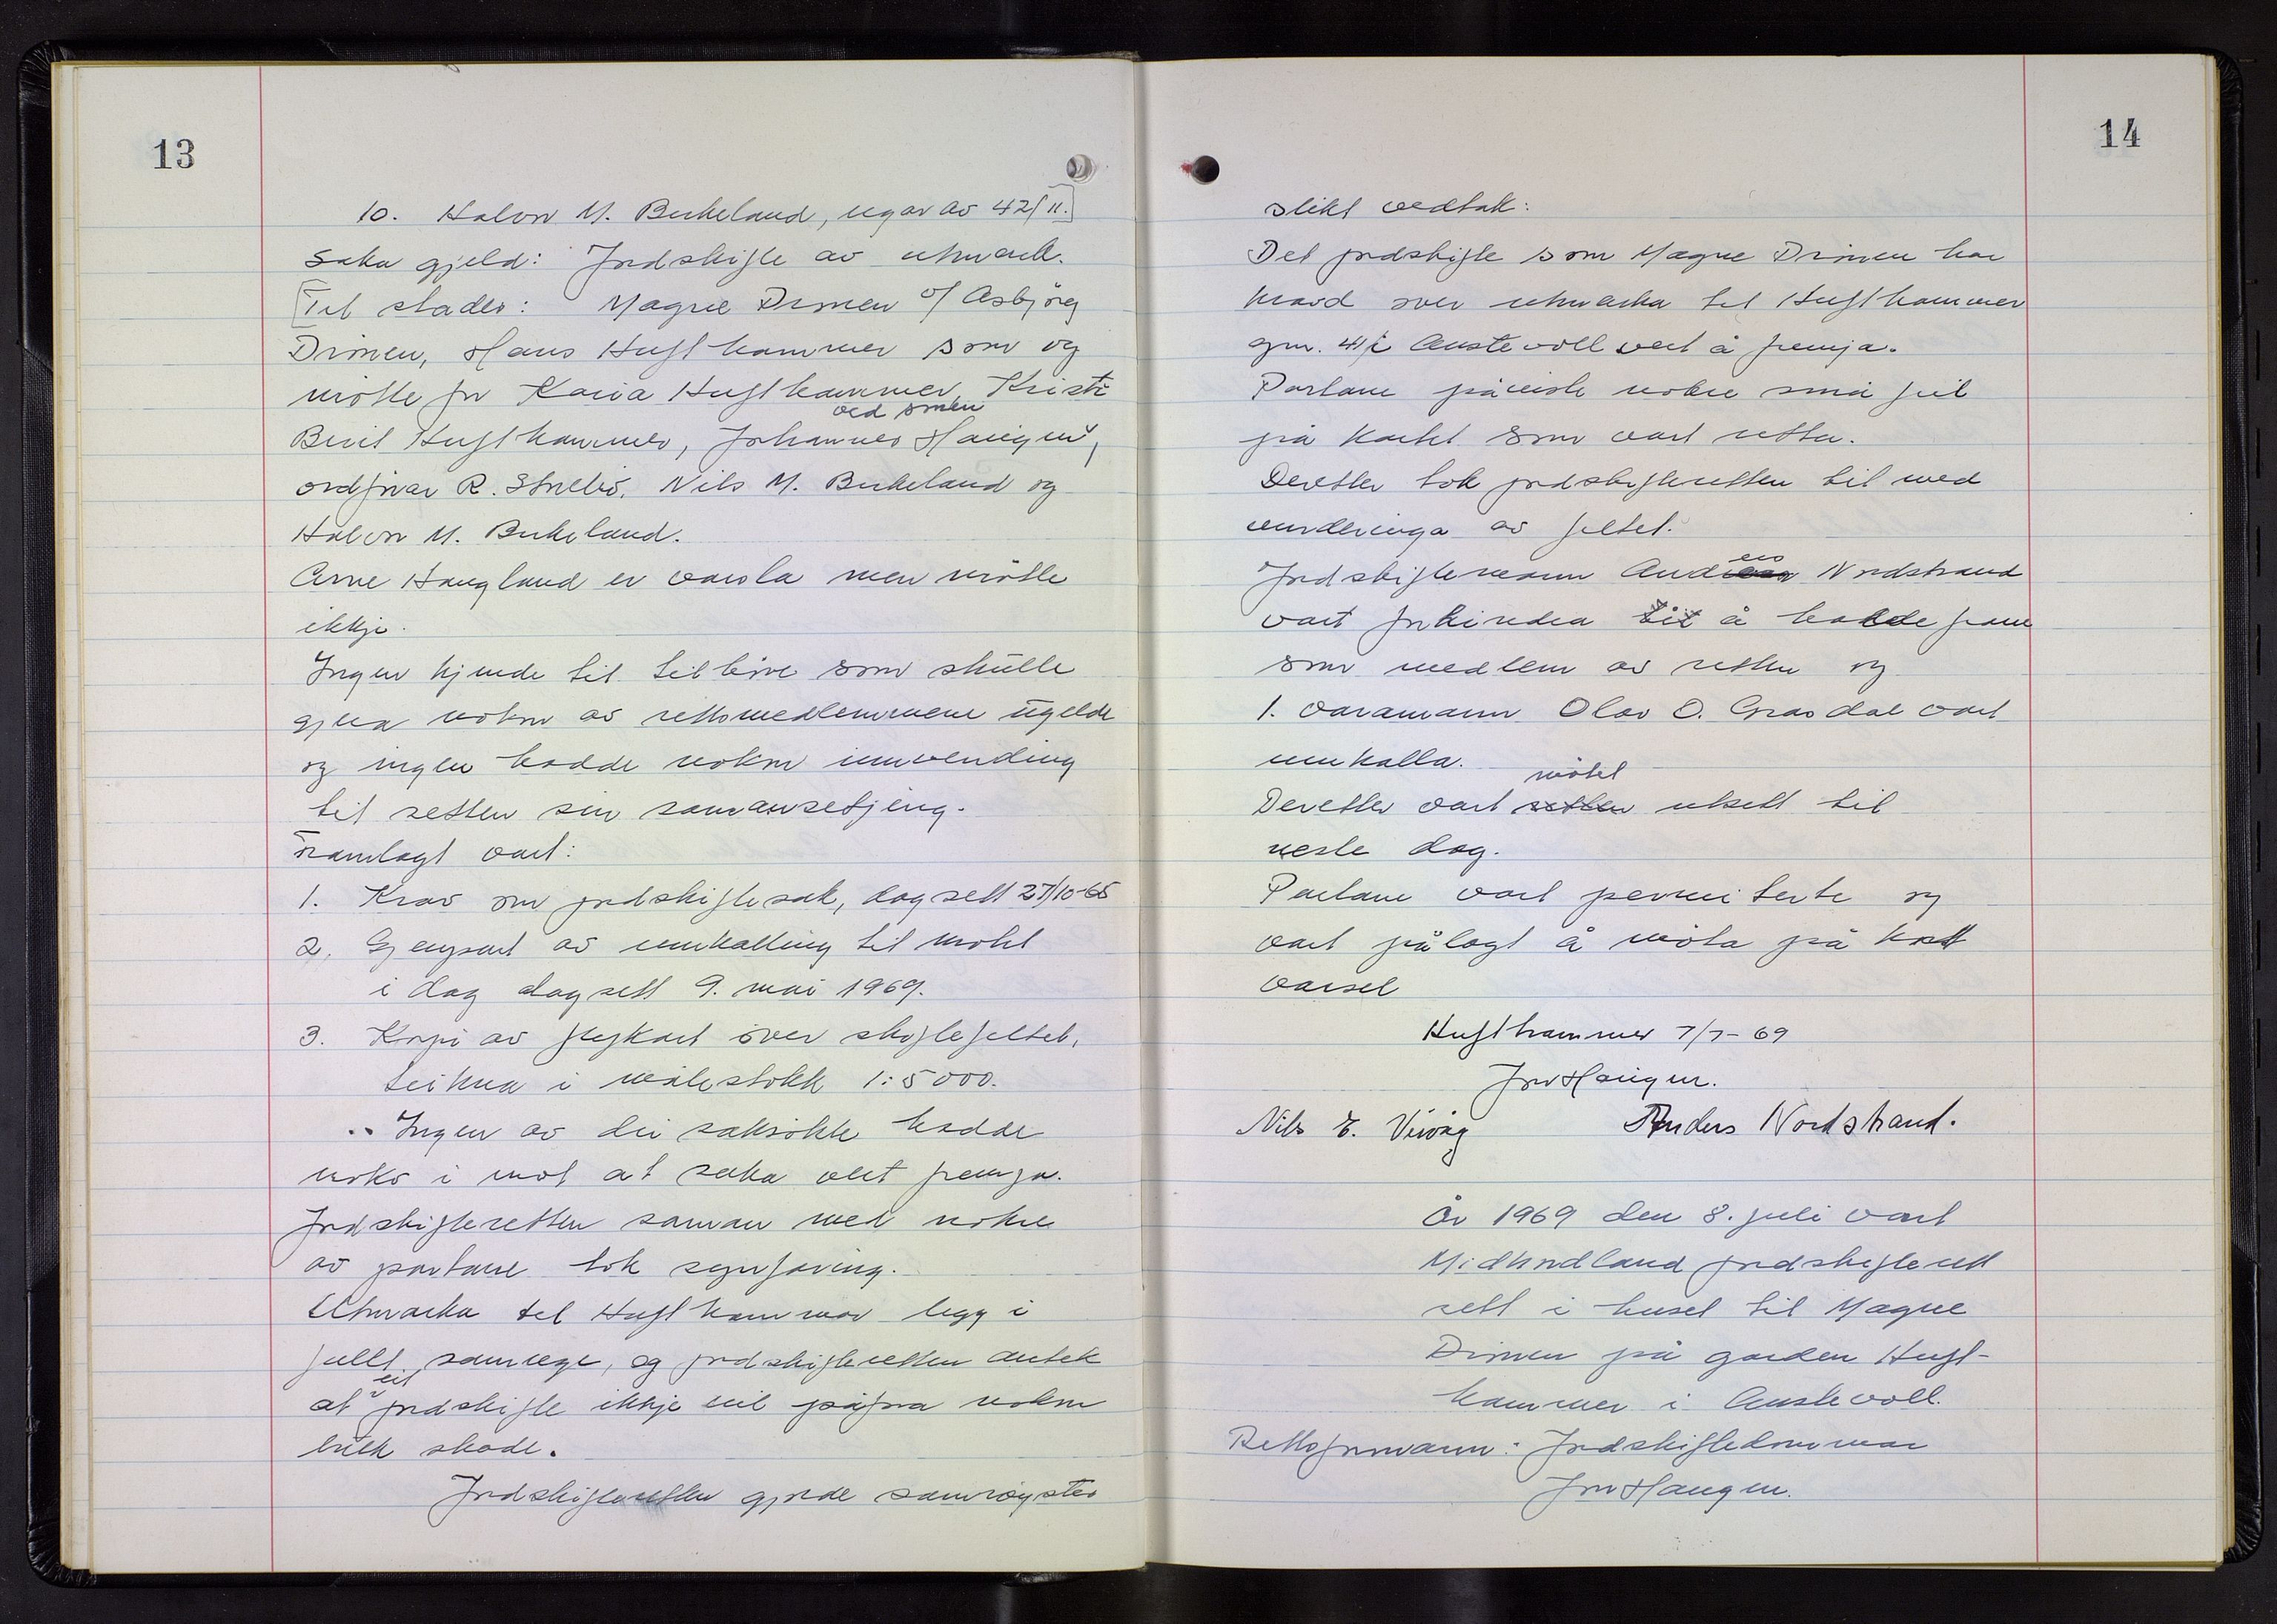 13
10. Halvor M. Birkeland, eigar av 42/11.
Saka gjeld: Jordskifte av utmark.
Til stades: Magne Drivenes f/ Asbjörg
Drimen, Hans Hufthammer som og
mötte for Karia Hufthammer, Kristi
ved sonen
Berit Hufthammer, Johannes Haugen,
ordförar R. Strebö, Nils M. Birkeland og
Halvor M. Birkeland.
Arne Haugland er varsla men mötte
ikkje.
Ingen kjende til tilhöve som skulle
gjera nokon av rettsmedlemmene ugilde
og ingen hadde nokon innvending
til retten sin samansetjing.
Framlagt vart:
1. Krav om jordskiftesak, dagsett 27/10-65
2. Gjenpart av innkalling til mötet
i dag dagsett 9. mai 1969.
3. Kopi av flykart över skiftefeltet,
teikna i målestokk 1:5000.
Ingen av dei saksökte hadde
noko i mot at saka vert fremja.
Jordskifteretten saman med nokre
av partane tok synfaring.
Utmarka til Hufthammer ligg i
fullt sameige, og jordskifteretten antek
eit
at jordskifte ikkje vil påföra nokon
bruk skade.
Jordskifteretten gjorde samröystes
14
slikt vedtak:
Det jordskifte som Magne Drimen har
kravd over utmarka til Hufthammer
gnr. 41 i Austevoll vert å fremja.
Partane påviste nokre små feil
på kartet som vart retta.
Deretter tok jordskifteretten til med
vurderinga av feltet.
ers
Jordskiftemann And Nordstrand
vart forhindra til å halde fram
som medlem av retten og
1. varamann Olav O. Grasdal vart
innkalla.
mötet
Deretter vart retten utsett til
neste dag.
Partane vart permiterte og
vart pålagt å möta på kort
varsel
Hufthammer 7/7-69
Jon Haugen.
Nils E. Vivåg Anders Nordstrand.
År 1969 den 8. juli vart
Midhordland jordskifterett
sett i huset til Magne
Drimen på garden Huft-
hammer i Austevoll.
Rettsformann: Jordskiftedommar
Jon Haugen.